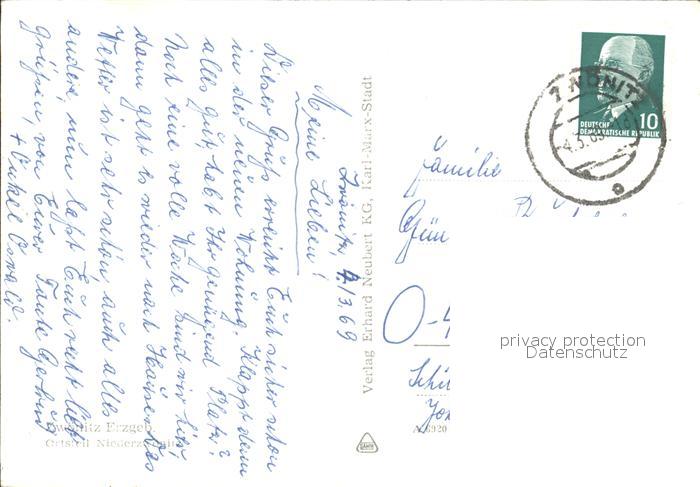 Zwönitz, 4.3.69
Meine Lieben!
Dieser Gruß erreicht Euch sicher schon
in der neuen Wohnung. Klappt denn
alles gut, habt Ihr genügend Platz?
Noch eine volle Woche sind wir hier,
dann geht es wieder nach Hause. Das
Wetter ist sehr schön auch alles
andere, nun laßt Euch recht lieb
grüßen, von Eurer Tante Gertrud
+ Onkel Oswald.
Zwönitz Erzgeb.
Ortsteil Niederzwönitz
Verlag Erhard Neubert KG, Karl-Marx-Stadt
A 6920
ZWÖNITZ
10
DEUTSCHE
DEMOKRATISCHE REPUBLIK
Familie
Gün
O-4
privacy protection
Datenschutz